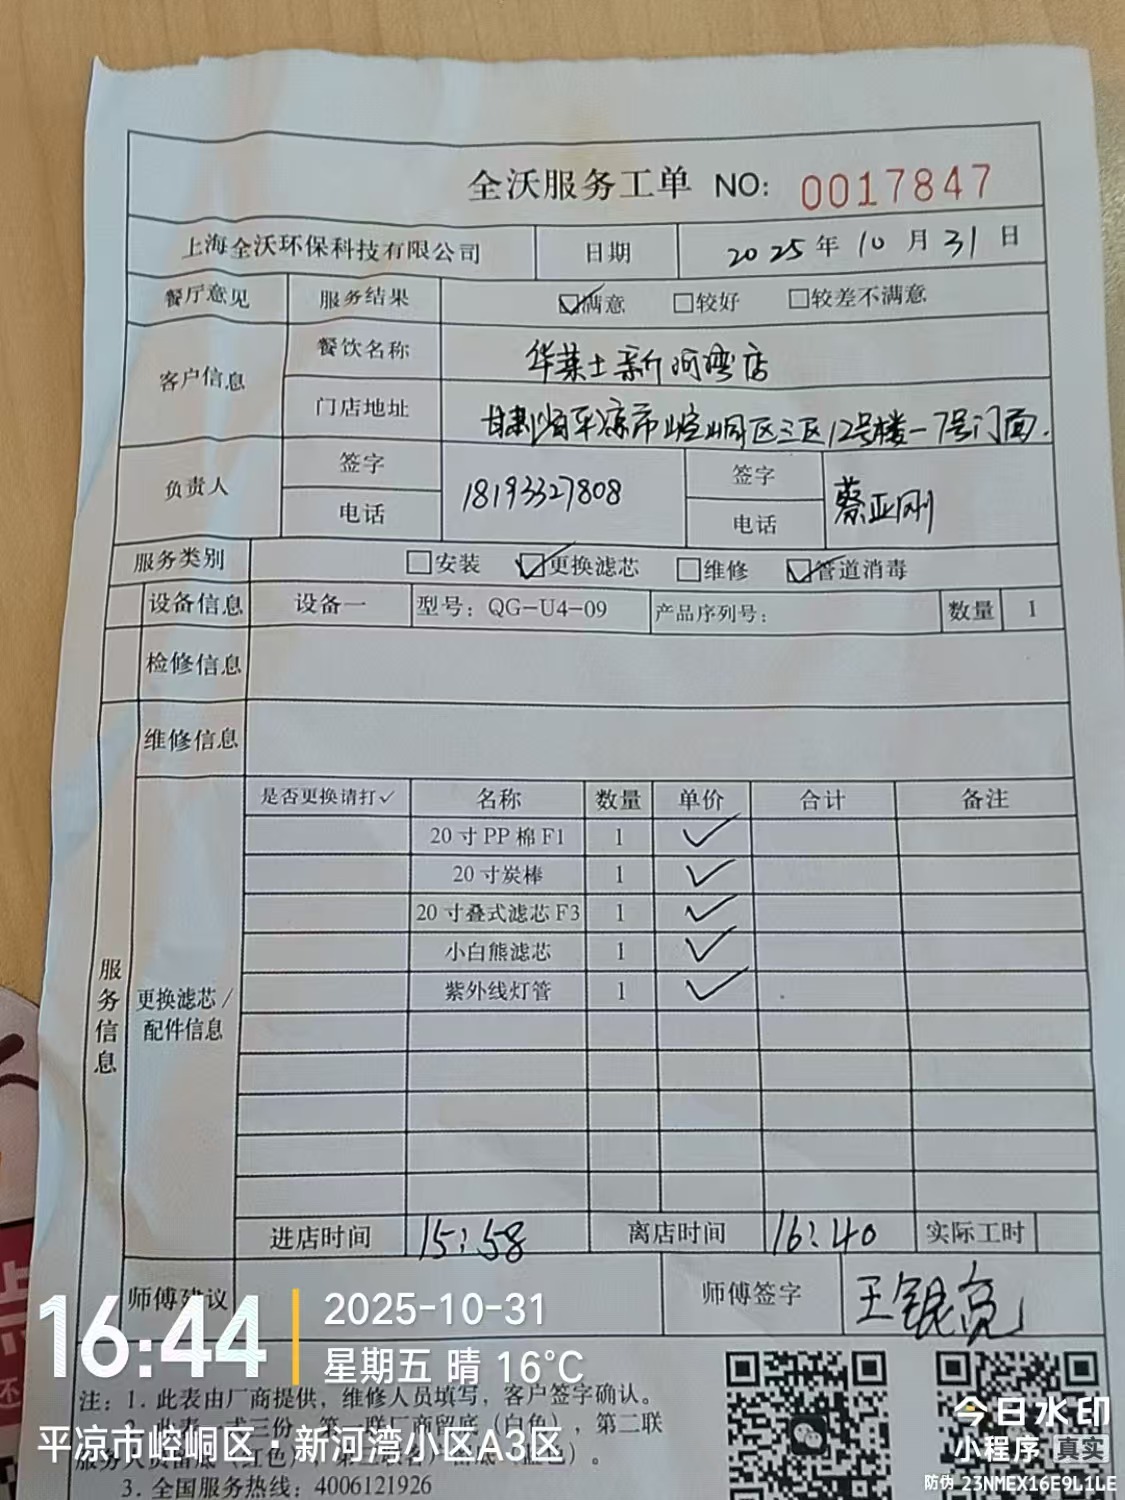 全沃服务工单 NO: 0017847
上海全沃环保科技有限公司 日期 2025年10月31日
餐厅意见 服务结果 ☑满意 □较好 □较差不满意
客户信息 餐饮名称 华莱士新河湾店
门店地址 甘肃省平凉市崆峒区三区12号楼-7号门面.
负责人 签字 18193327808 签字 蔡亚刚
电话 电话
服务类别 □安装 ☑更换滤芯 □维修 ☑管道消毒
设备信息 设备一 型号: QG-U4-09 产品序列号: 数量 1
检修信息
维修信息
服务信息
更换滤芯/配件信息
是否更换请打✓ 名称 数量 单价 合计 备注
20寸PP棉F1 1 ✓
20寸炭棒 1 ✓
20寸叠式滤芯F3 1 ✓
小白熊滤芯 1 ✓
紫外线灯管 1 ✓
进店时间 15:58 离店时间 16:40 实际工时
师傅建议 师傅签字 王锟亮
16:44 2025-10-31
星期五 晴 16°C
注: 1. 此表由厂商提供，维修人员填写，客户签字确认。
2. 此表一式三份，第一联厂商留底（白色），第二联
平凉市崆峒区·新河湾小区A3区
3. 全国服务热线: 4006121926
今日水印
小程序 真实
防伪 23NMEX16E9L1LE